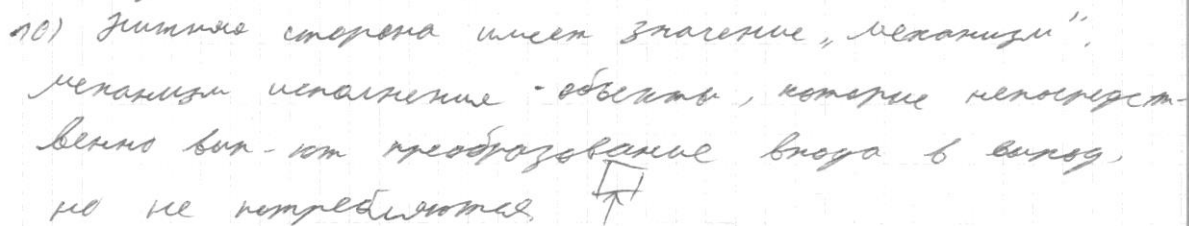 10) Нижняя сторона имеет значение „механизм".
механизм исполнения - объекты, которые непосредст-
венно вып-ют преобразование входа в выход,
но не потребляются.